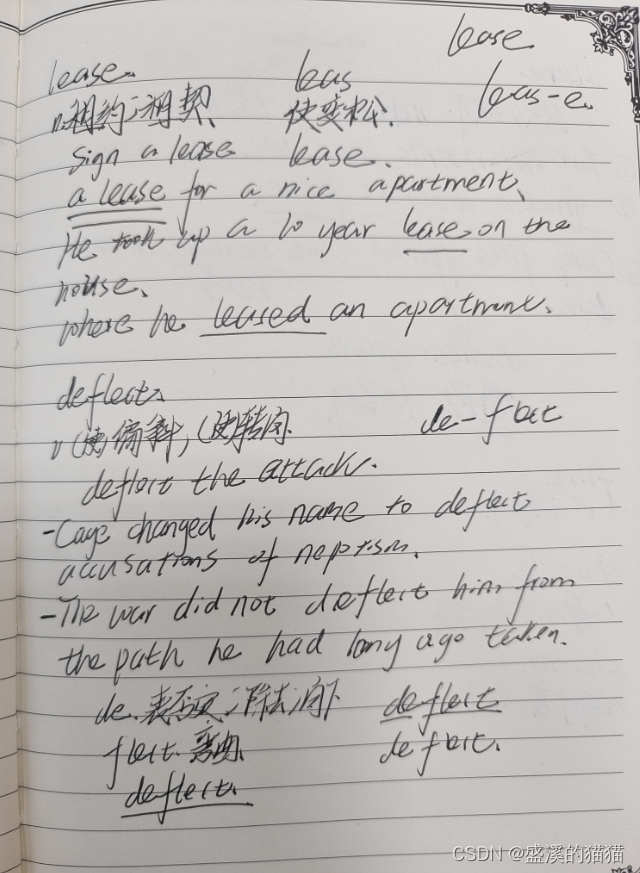 lease
lease. leas leas-e.
n.租约;租契 使变松.
sign a lease lease.
a lease for a nice apartment,
He took up a 10 year lease on the
house.
where he leased an apartment.
deflect.
v(使)偏斜,(使)转向. de-flect
deflect the attack.
-Cage changed his name to deflect
accusations of nepotism.
-The war did not deflect him from
the path he had long ago taken.
de.表否定;除去;向下 deflect
flect.弯曲. deflect.
deflect.
CSDN @盛溪的猫猫